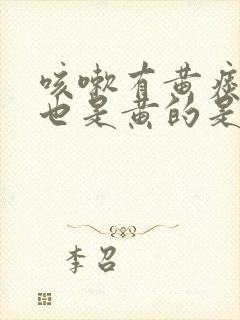 咳嗽有黄痰
也是黄的是
李召